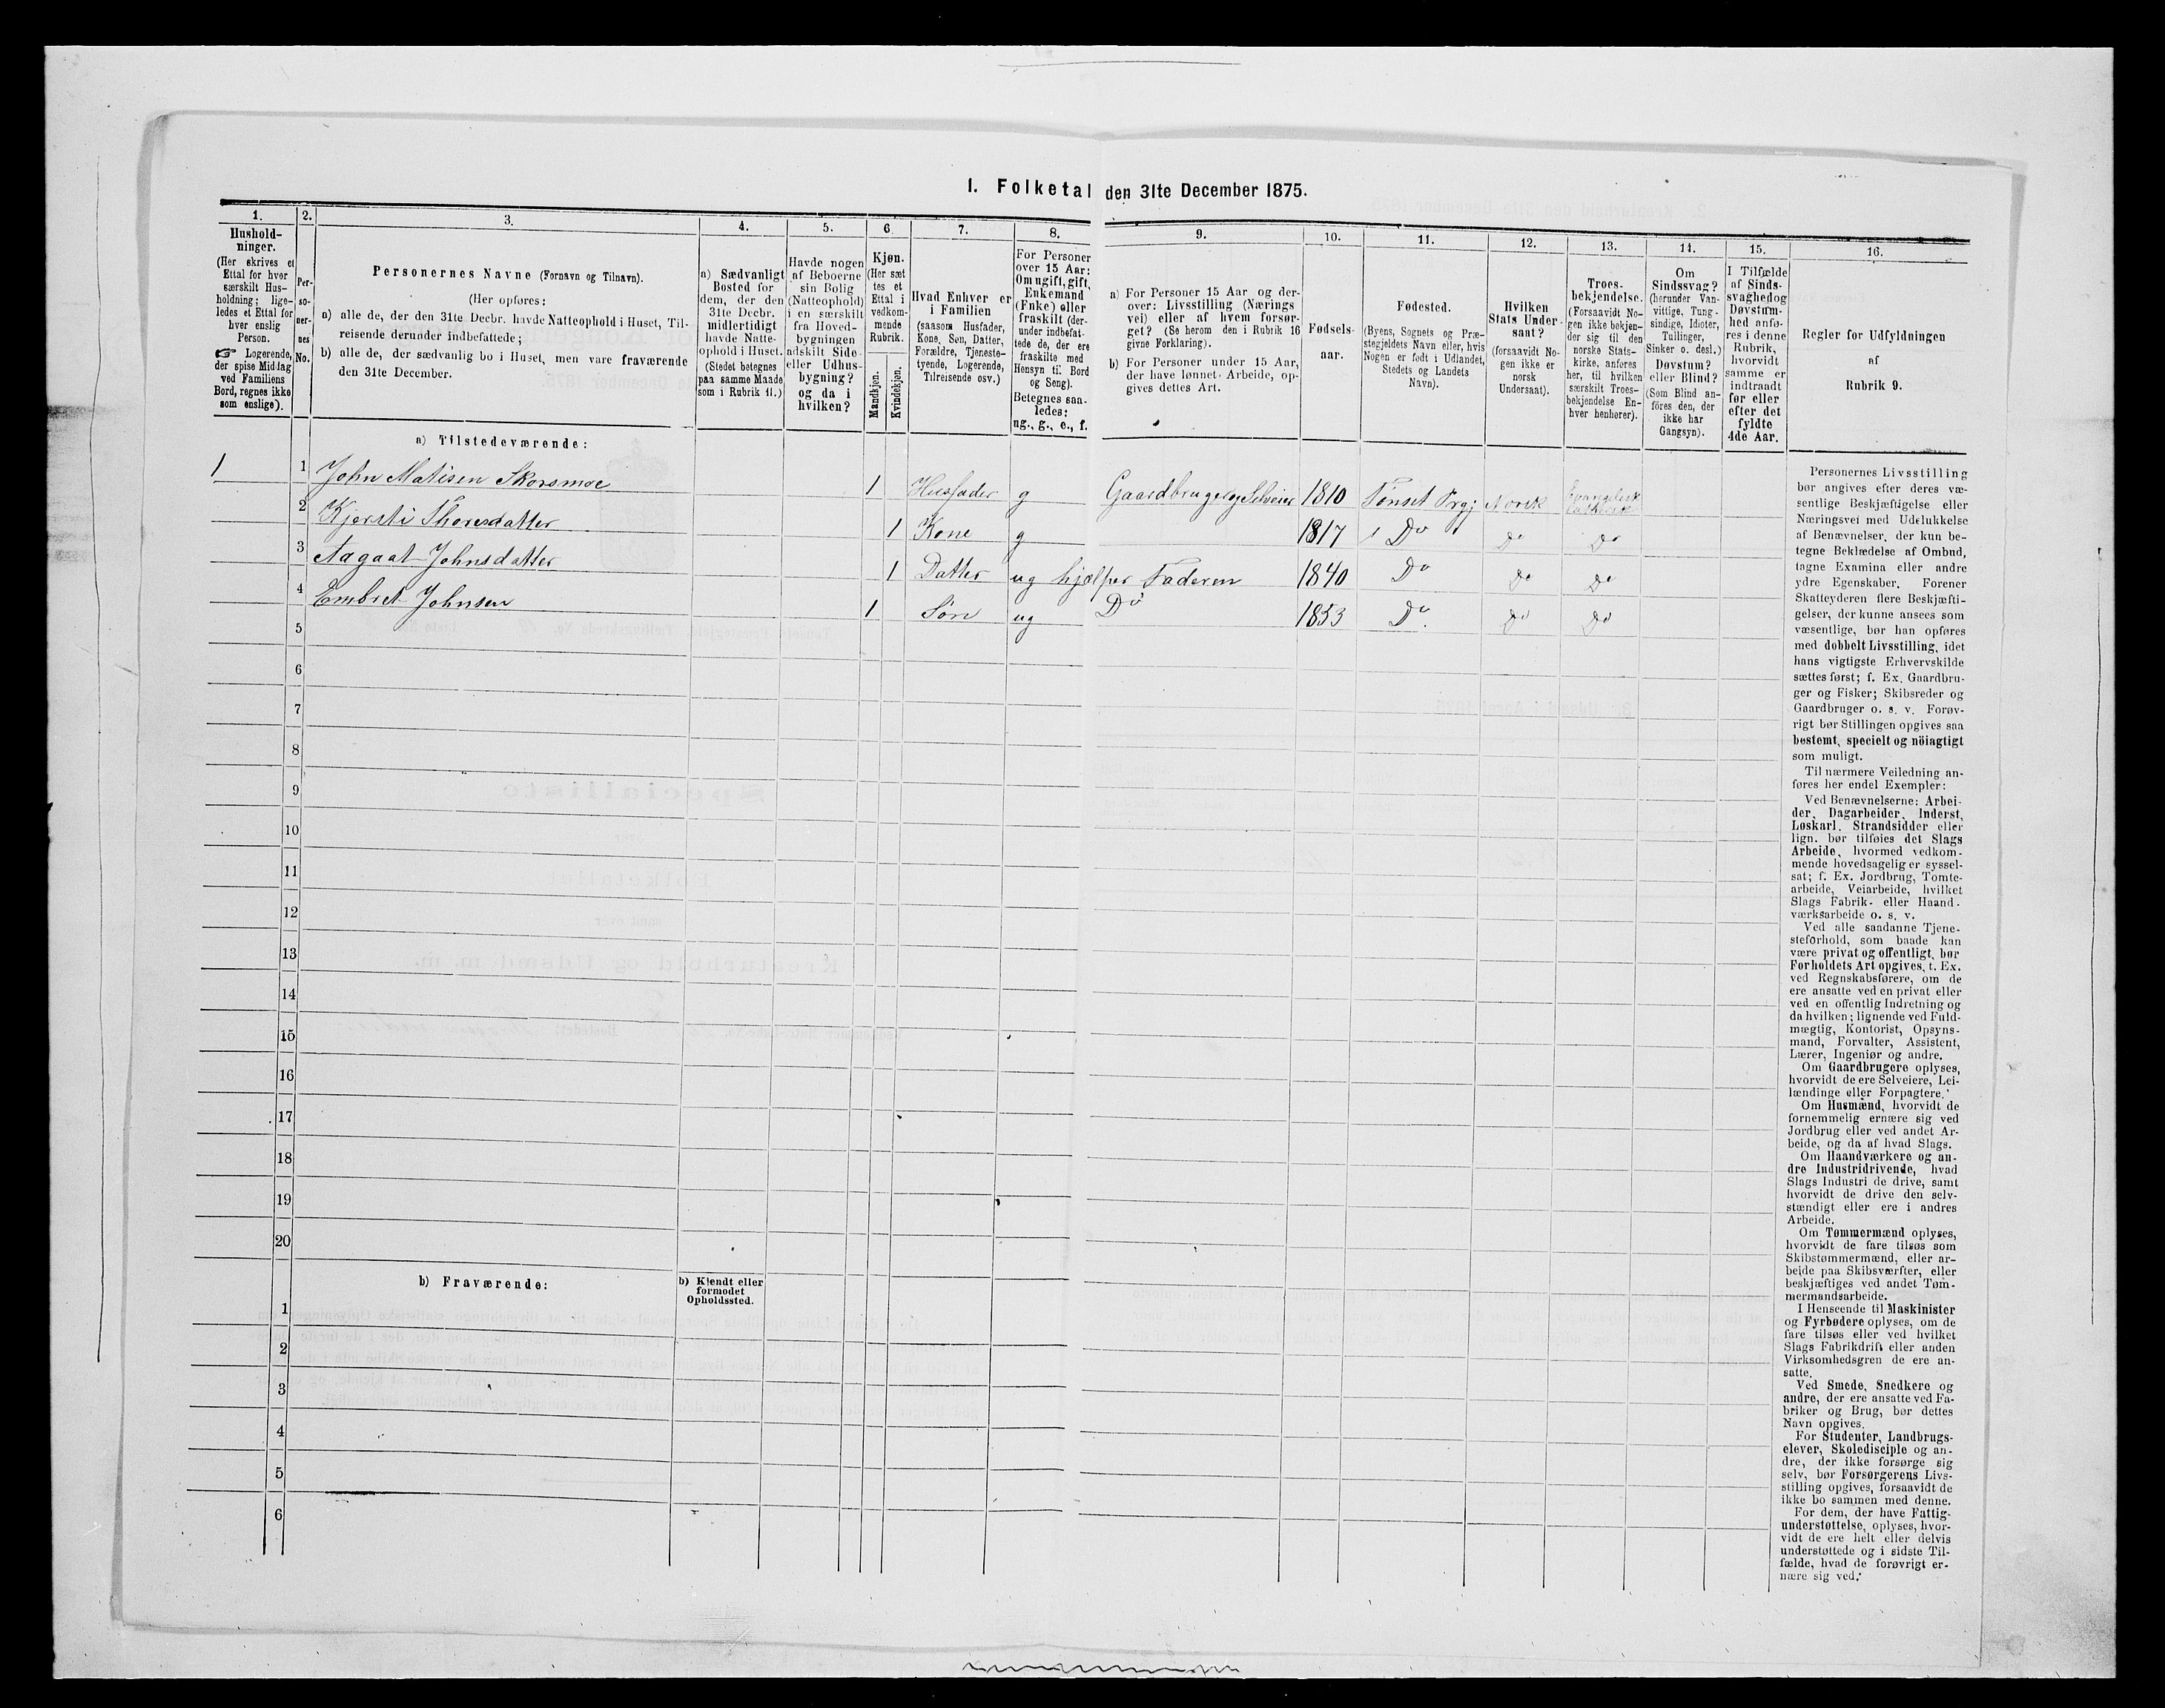 1. Folketal den 31te December 1875.
1.
Hushold-
ninger.
(Her skrives et
Ettal for hver
særskilt Hus-
holdning; lige-
ledes et Ettal for
hver enslig
Person.
☞ Logerende,
der spise Middag
ved Familiens
Bord, regnes ikke
som enslige).
2.
Per-
so-
ner-
nes
No.
3.
Personernes Navne (Fornavn og Tilnavn).
(Her opføres:
a) alle de, der den 31te Decbr. havde Natteophold i Huset, Til-
reisende derunder indbefattede;
b) alle de, der sædvanlig bo i Huset, men vare fraværende
den 31te December.
4.
a) Sædvanligt
Bosted for
dem, der den
31te Decbr.
midlertidigt
havde Natte-
ophold i Huset.
(Stedet betegnes
paa samme Maade
som i Rubrik 11.)
5.
Havde nogen
af Beboerne
sin Bolig
(Natteophold)
i en særskilt
fra Hoved-
bygningen
adskilt Side-
eller Udhus-
bygning?
og da i
hvilken?
6.
Kjøn.
(Her sæt-
tes et
Ettal i
vedkom-
mende
Rubrik.
Mandkjøn.
Kvindekjøn.
7.
Hvad Enhver er
i Familien
(saasom Husfader,
Kone, Søn, Datter,
Forældre, Tjeneste-
tyende, Logerende,
Tilreisende osv.)
8.
For Personer
over 15 Aar:
Om ugift, gift,
Enkemand
(Enke) eller
fraskilt (der-
under indbefat-
tede de, der ere
fraskilte med
Hensyn til Bord
og Seng).
Betegnes saa-
ledes:
ug., g., e., f.
9.
a) For Personer 15 Aar og der-
over: Livsstilling (Nærings
vei) eller af hvem forsør-
get? (Se herom den i Rubrik 16
givne Forklaring).
b) For Personer under 15 Aar,
der have lønnet Arbeide, op-
gives dettes Art.
10.
Fødsels-
aar.
11.
Fødested.
(Byens, Sognets og Præ-
stegjeldets Navn eller, hvis
Nogen er født i Udlandet,
Stedets og Landets
Navn).
12.
Hvilken
Stats Under-
saat?
(forsaavidt No-
gen ikke er
norsk
Undersaat).
13.
Troes-
bekjendelse.
(Forsaavidt No-
gen ikke bekjen-
der sig til den
norske Stats-
kirke, anføres
her, til hvilken
særskilt Troes-
bekjendelse En-
hver henhører).
14.
Om
Sindssvag?
(herunder Van-
vittige, Tung-
sindige, Idioter,
Tullinger,
Sinker o. desl.)
Døvstum?
eller Blind?
(Som Blind an-
føres den, der
ikke har
Gangsyn).
15.
I Tilfælde
af Sinds-
svaghed og
Døvstum-
hed anfø-
res i denne
Rubrik,
hvorvidt
samme er
indtraadt
før eller
efter det
fyldte
4de Aar.
16.
Regler for Udfyldningen
af
Rubrik 9.
a) Tilstedeværende:
1 1 John Matisen Skorsmoe 1 Husfader g Gaardbruger og Selveier 1810 Tønset Prgj Norsk Evangelisk Luthersk
2 Kjersti Thoresdatter 1 Kone g 1817 Do Do Do
3 Aagaat Johnsdatter 1 Datter ug hjælper Faderen 1840 Do Do Do
4 Embret Johnsen 1 Søn ug Do 1853 Do. Do Do
5
6
7
8
9
10
11
12
13
14
15
16
17
18
19
20
b) Fraværende:
b) Kjendt eller
formodet
Opholdssted.
1
2
3
4
5
6
Personernes Livsstilling
bør angives efter deres væ-
sentlige Beskjæftigelse eller
Næringsvei med Udelukkelse
af Benævnelser, der kun be-
tegne Beklædelse af Ombud,
tagne Examina eller andre
ydre Egenskaber. Forener
Skatteyderen flere Beskjæfti-
gelser, der kunne ansees som
væsentlige, bør han opføres
med dobbelt Livsstilling, idet
hans vigtigste Erhvervskilde
sættes først; f. Ex. Gaardbru-
ger og Fisker; Skibsreder og
Gaardbruger o. s. v. Forøv-
rigt bør Stillingen opgives saa
bestemt, specielt og nöiagtigt
som muligt.
Til nærmere Veiledning an-
føres her endel Exempler:
Ved Benævnelserne: Arbei-
der, Dagarbeider, Inderst,
Løskarl, Strandsidder eller
lign. bør tilføies det Slags
Arbeide, hvormed vedkom-
mende hovedsagelig er syssel-
sat; f. Ex. Jordbrug, Tomte-
arbeide, Veiarbeide, hvilket
Slags Fabrik- eller Haand-
værksarbeide o. s. v.
Ved alle saadanne Tjene-
steforhold, som baade kan
være privat og offentligt, bør
Forholdets Art opgives, t. Ex.
ved Regnskabsførere, om de
ere ansatte ved en privat eller
ved en offentlig Indretning og
da hvilken; lignende ved Fuld-
mægtig, Kontorist, Opsyns-
mand, Forvalter, Assistent,
Lærer, Ingeniør og andre.
Om Gaardbrugere oplyses,
hvorvidt de ere Selveiere, Lei-
lændinge eller Forpagtere.
Om Husmænd, hvorvidt de
fornemmelig ernære sig ved
Jordbrug eller ved andet Ar-
beide, og da af hvad Slags.
Om Haandværkere og an-
dre Industridrivende, hvad
Slags Industri de drive, samt
hvorvidt de drive den selv-
stændigt eller ere i andres
Arbeide.
Om Tømmermænd oplyses,
hvorvidt de fare tilsøs som
Skibstømmermænd, eller ar-
beide paa Skibsværfter, eller
beskjæftiges ved andet Tøm-
mermandsarbeide.
I Henseende til Maskinister
og Fyrbødere oplyses, om de
fare tilsøs eller ved hvilket
Slags Fabrikdrift eller anden
Virksomhedsgren de ere an-
satte.
Ved Smede, Snedkere og
andre, der ere ansatte ved Fa-
briker og Brug, bør dettes
Navn opgives.
For Studenter, Landbrugs-
elever, Skoledisciple og an-
dre, der ikke forsørge sig
selv, bør Forsørgerens Livs-
stilling opgives, forsaavidt de
ikke bo sammen med denne.
For dem, der have Fattig-
understøttelse, oplyses, hvor-
vidt de ere helt eller delvis
understøttede og i sidste Til-
fælde, hvad de forøvrigt er-
nære sig ved.